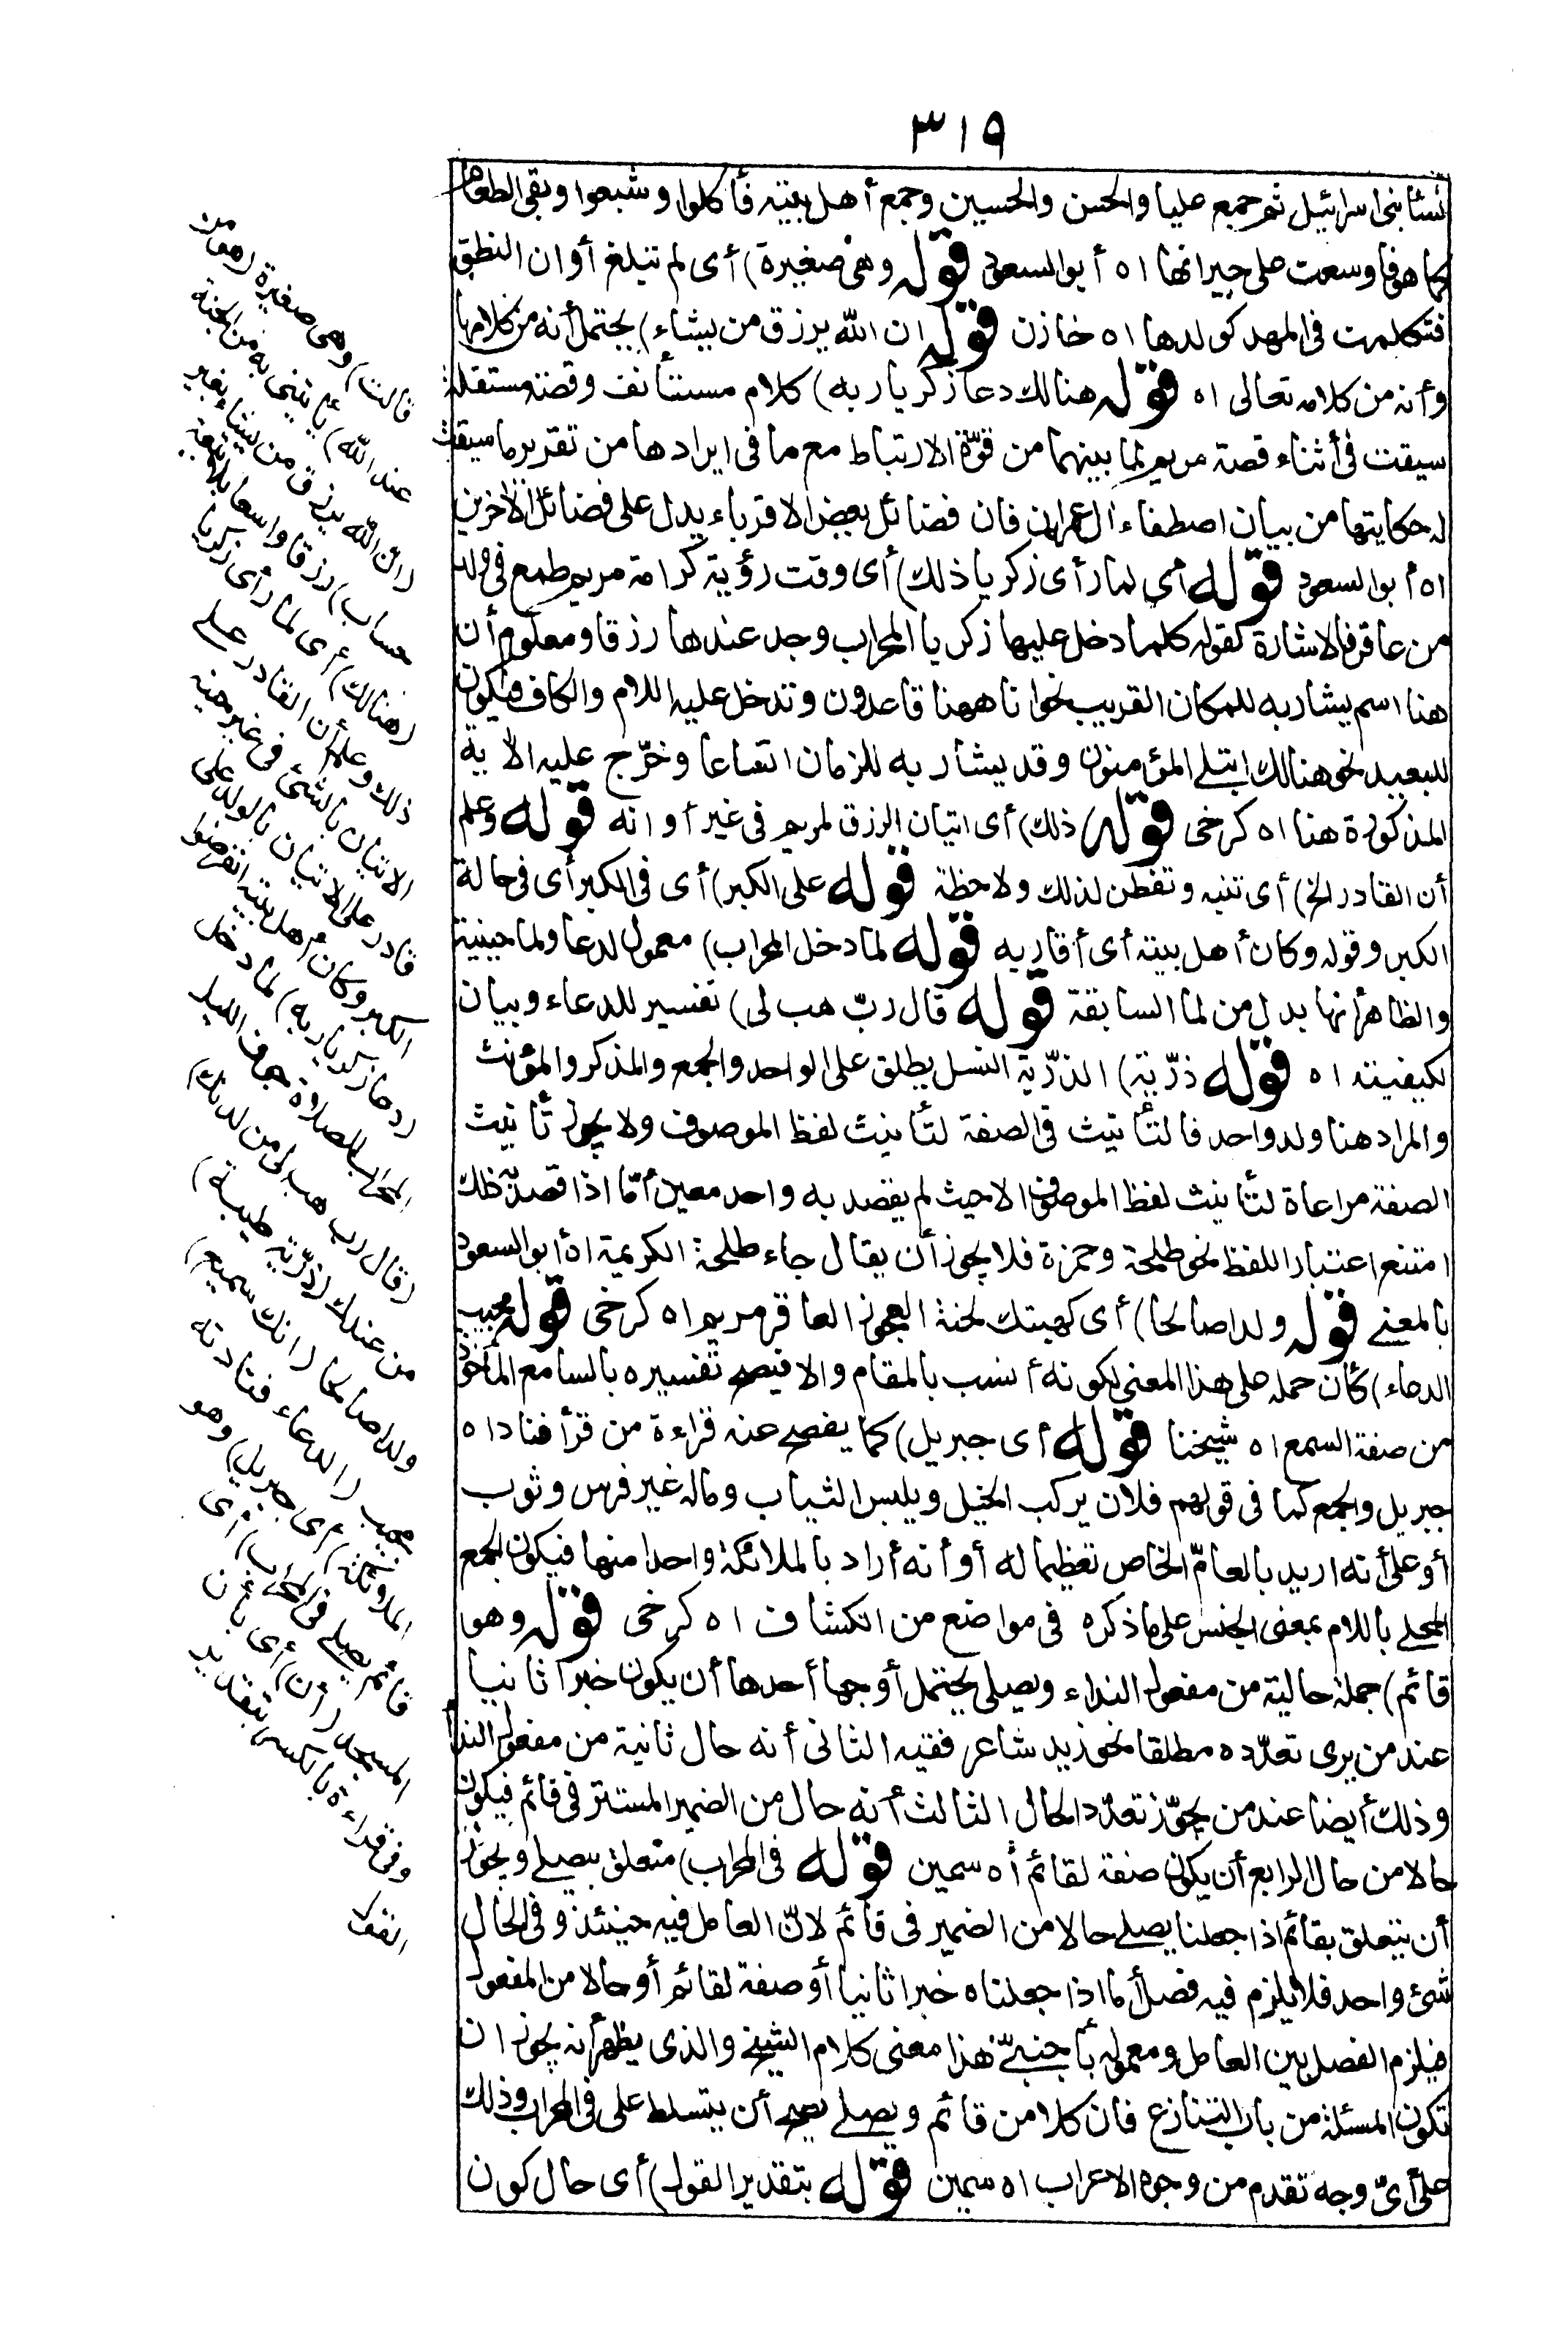 ٣١٩
نساء بنى اسرائيل ثم جمع عليا والحسن والحسين وجمع أهل بيته فأكلوا وشبعوا وبقى الطعام
كما هو فأوسعت على جيرانها اه أبو السعود قوله وهى صغيرة) أى لم تبلغ أوان النطق
فتكلمت فى المهد كولدها اه خازن قوله ان الله يرزق من يشاء) يحتمل أنه من كلامها
وأنه من كلامه تعالى اه قوله هنالك دعا زكريا ربه) كلام مستأنف وقصة مستقلة
سيقت فى أثناء قصة مريم لما بينهما من قوّة الارتباط مع ما فى ايرادها من تقرير ما سيقت
له حكايتها من بيان اصطفاء آل عمران فان فضائل بعض الاقرباء يدل على فضائل الآخرين
اه أبو السعود قوله أى لما رأى زكريا ذلك) أى وقت رؤية كرامة مريم طمع فى ولد
من عاقر فالاشارة كقوله كلما دخل عليها زكريا المحراب وجد عندها رزقا ومعلوم أن
هنا اسم يشار به للمكان القريب نحو انا ههنا قاعدون وتدخل عليه اللام والكاف فيكون
للبعيد نحو هنالك ابتلى المؤمنون وقد يشار به للزمان اتساعا وخرّج عليه الآية
المذكورة هنا اه كرخى قوله ذلك) أى اتيان الرزق لمريم فى غير أوانه قوله وعلم
أن القادر الخ) أى تنبه وتفطن لذلك ولاحظه قوله على الكبر) أى فى الكبر أى فى حالة
الكبر وقوله وكان أهل بيته أى أقاربه قوله لما دخل المحراب) معمول لدعا ولما حينية
والظاهر أنها بدل من لما السابقة قوله قال ربّ هب لى) تفسير للدعاء وبيان
لكيفيته اه قوله ذرّية) الذرّية النسل يطلق على الواحد والجمع والمذكر والمؤنث
والمراد هنا ولد واحد فالتأنيث فى الصفة لتأنيث لفظ الموصوف ولا يجوز تأنيث
الصفة مراعاة لتأنيث لفظ الموصوف الا حيث لم يقصد به واحد معين أمّا اذا قصد به ذلك
امتنع اعتبار اللفظ نحو طلحة وحمزة فلا يجوز أن يقال جاء طلحة الكريمة اه أبو السعود
بالمعنى قوله ولدا صالحا) أى كهبتك لحنة العجوز العاقر مريم اه كرخى قوله مجيب
الدعاء) كأن حمله على هذا المعنى لكونه أنسب بالمقام والا فيصح تفسيره بالسامع المأخوذ
من صفة السمع اه شيخنا قوله أى جبريل) كما يفصح عنه قراءة من قرأ فناداه
جبريل والجمع كما فى قولهم فلان يركب الخيل ويلبس الثياب وماله غير فرس وثوب
أو على أنه اريد بالعامّ الخاص تعظيما له أو أنه أراد بالملائكة واحدا منها فيكون الجمع
المحلى باللام بمعنى الجنس على ما ذكره فى مواضع من الكشاف اه كرخى قوله وهو
قائم) جملة حالية من مفعول النداء ويصلى يحتمل أوجها أحدها أن يكون خبرا ثانيا
عند من يرى تعدّده مطلقا نحو زيد شاعر فقيه الثانى أنه حال ثانية من مفعول النداء
وذلك أيضا عند من يجوّز تعدّد الحال الثالث أنه حال من الضمير المستتر فى قائم فيكون
حالا من حال الرابع أن يكون صفة لقائم اه سمين قوله فى المحراب) متعلق بيصلى ويجوز
أن يتعلق بقائم اذا جعلنا يصلى حالا من الضمير فى قائم لانّ العامل فيه حينئذ وفى الحال
شئ واحد فلا يلزم فيه فصل أما اذا جعلناه خبرا ثانيا أو صفة لقائم أو حالا من المفعول
فيلزم الفصل بين العامل ومعموله بأجنبىّ هذا معنى كلام الشيخ والذى يظهر أنه يجوز ان
تكون المسئلة من باب التنازع فان كلا من قائم ويصلى يصح أن يتسلط على فى المحراب وذلك
على أىّ وجه تقدم من وجوه الاعراب اه سمين قوله بتقدير القول) أى حال كون
قالت) وهى صغيرة (هو من
عند الله) يأتينى به من الجنة
(ان الله يرزق من يشاء بغير
حساب) رزقا واسعا بلا تبعة
(هنالك) أى لما رأى زكريا
ذلك وعلم أن القادر على
الاتيان بالشئ فى غير حينه
قادر على الاتيان بالولد على
الكبر وكان أهل بيته انقرضوا
(دعا زكريا ربه) لما دخل
المحراب للصلاة جوف الليل
(قال رب هب لى من لدنك)
من عندك (ذرّية طيبة)
ولدا صالحا (انك سميع)
مجيب (الدعاء فنادته
الملائكة) أى جبريل (وهو
قائم يصلى فى المحراب) أى
المسجد (أن) أى بأن
وفى قراءة بالكسر بتقدير
القول